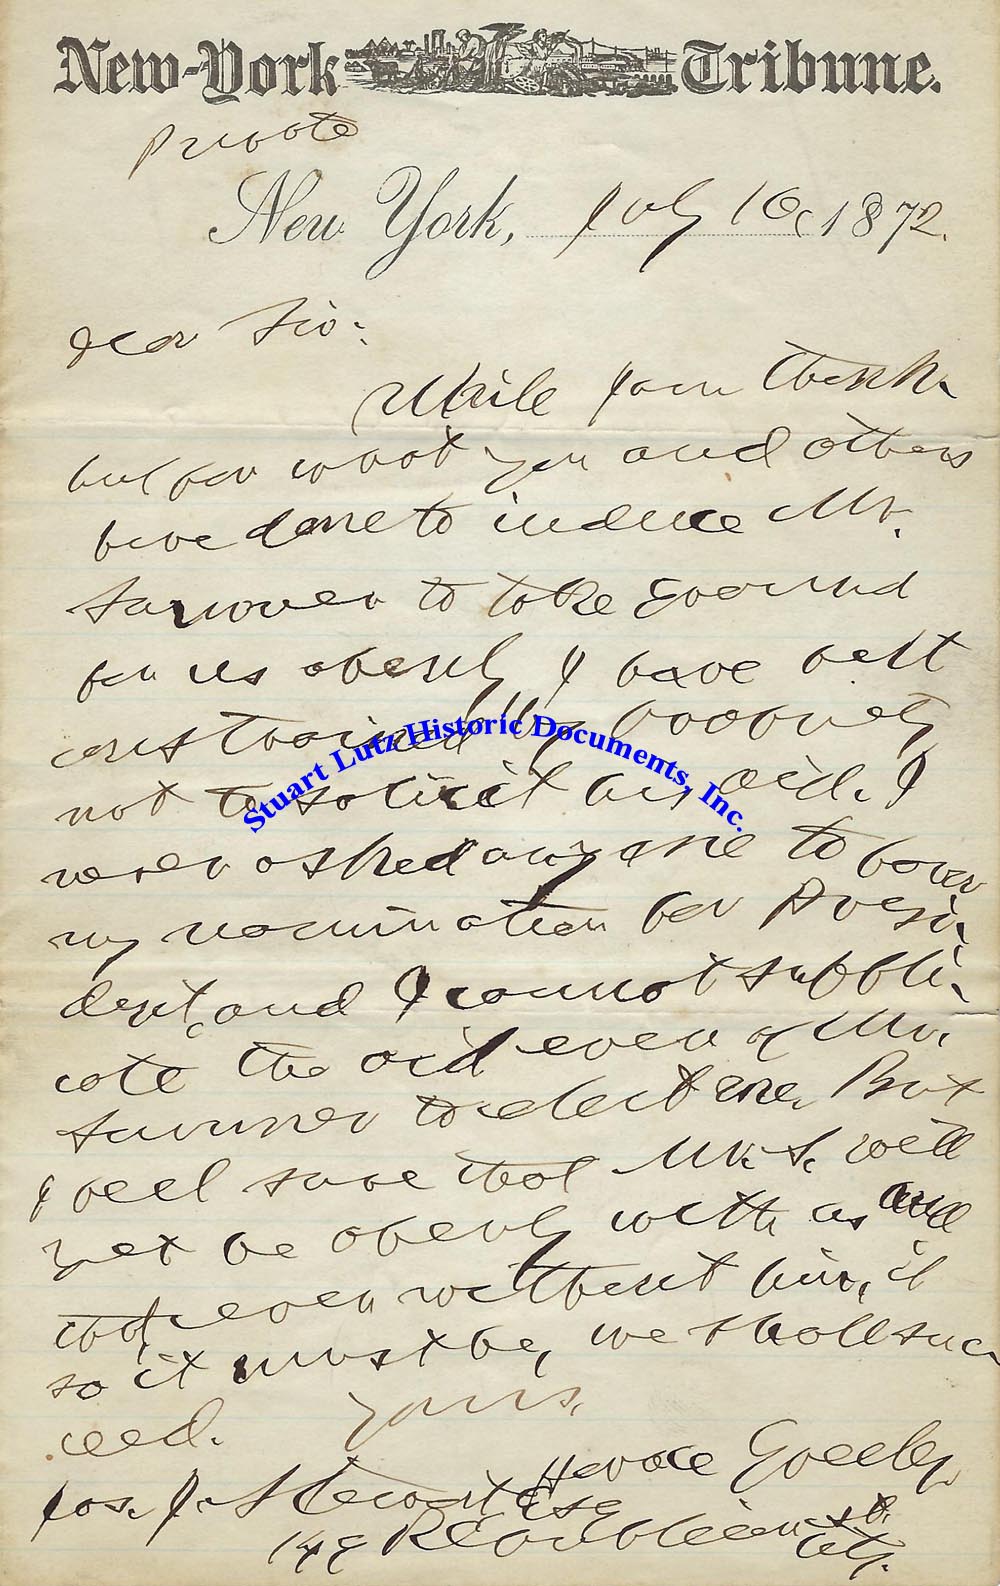 New-York Tribune.
Private
New York, July 10, 1872.
Dear Sir:
While I am thank-
ful for what you and others
have done to induce Mr.
Sumner to take ground
for us openly I have felt
constrained by propriety
not to solicit his aid. I
never asked any one to favor
my nomination for Presi-
dent, and I cannot suppli-
cate the aid even of Mr.
Sumner to elect me. But
I feel sure that Mr. S. will
yet be openly with us and
that even without him, if
so it must be, we shall suc-
ceed. Yours,
Horace Greeley
Jos. J. Stewart Esq
St.
City.
Stuart Lutz Historic Documents, Inc.